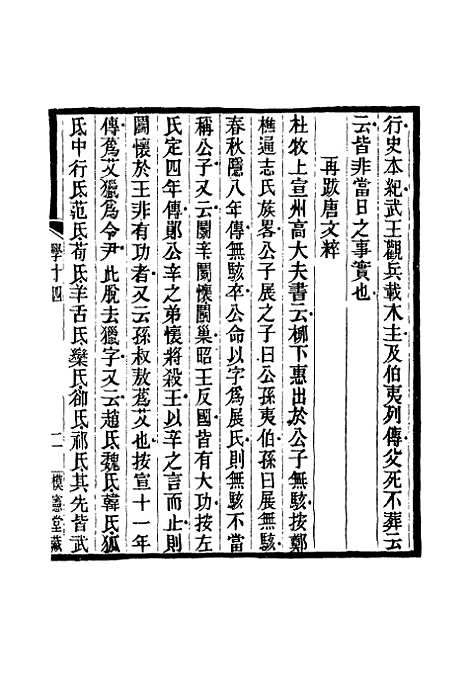 行史本紀武王觀兵載木主及伯夷列傳父死不葬云
云皆非當日之事實也
再跋唐文粹
杜牧上宣州高大夫書云柳下惠出於公子無駭按鄭
樵通志氏族畧公子展之子曰公孫夷伯孫曰展無駭
春秋隱八年傳無駭卒公命以字爲展氏則無駭不當
稱公子又云鬭辛鬭懷鬭巢昭王反國皆有大功按左
氏定四年傳鄖公辛之弟懷將殺王以辛之言而止則
鬭懷於王非有功者又云孫叔敖蒍艾也按宣十一年
傳蒍艾獵爲令尹此脫去獵字又云趙氏魏氏韓氏狐
氏中行氏范氏荀氏羊舌氏欒氏郤氏祁氏其先皆武
學十四
二
模憲堂藏